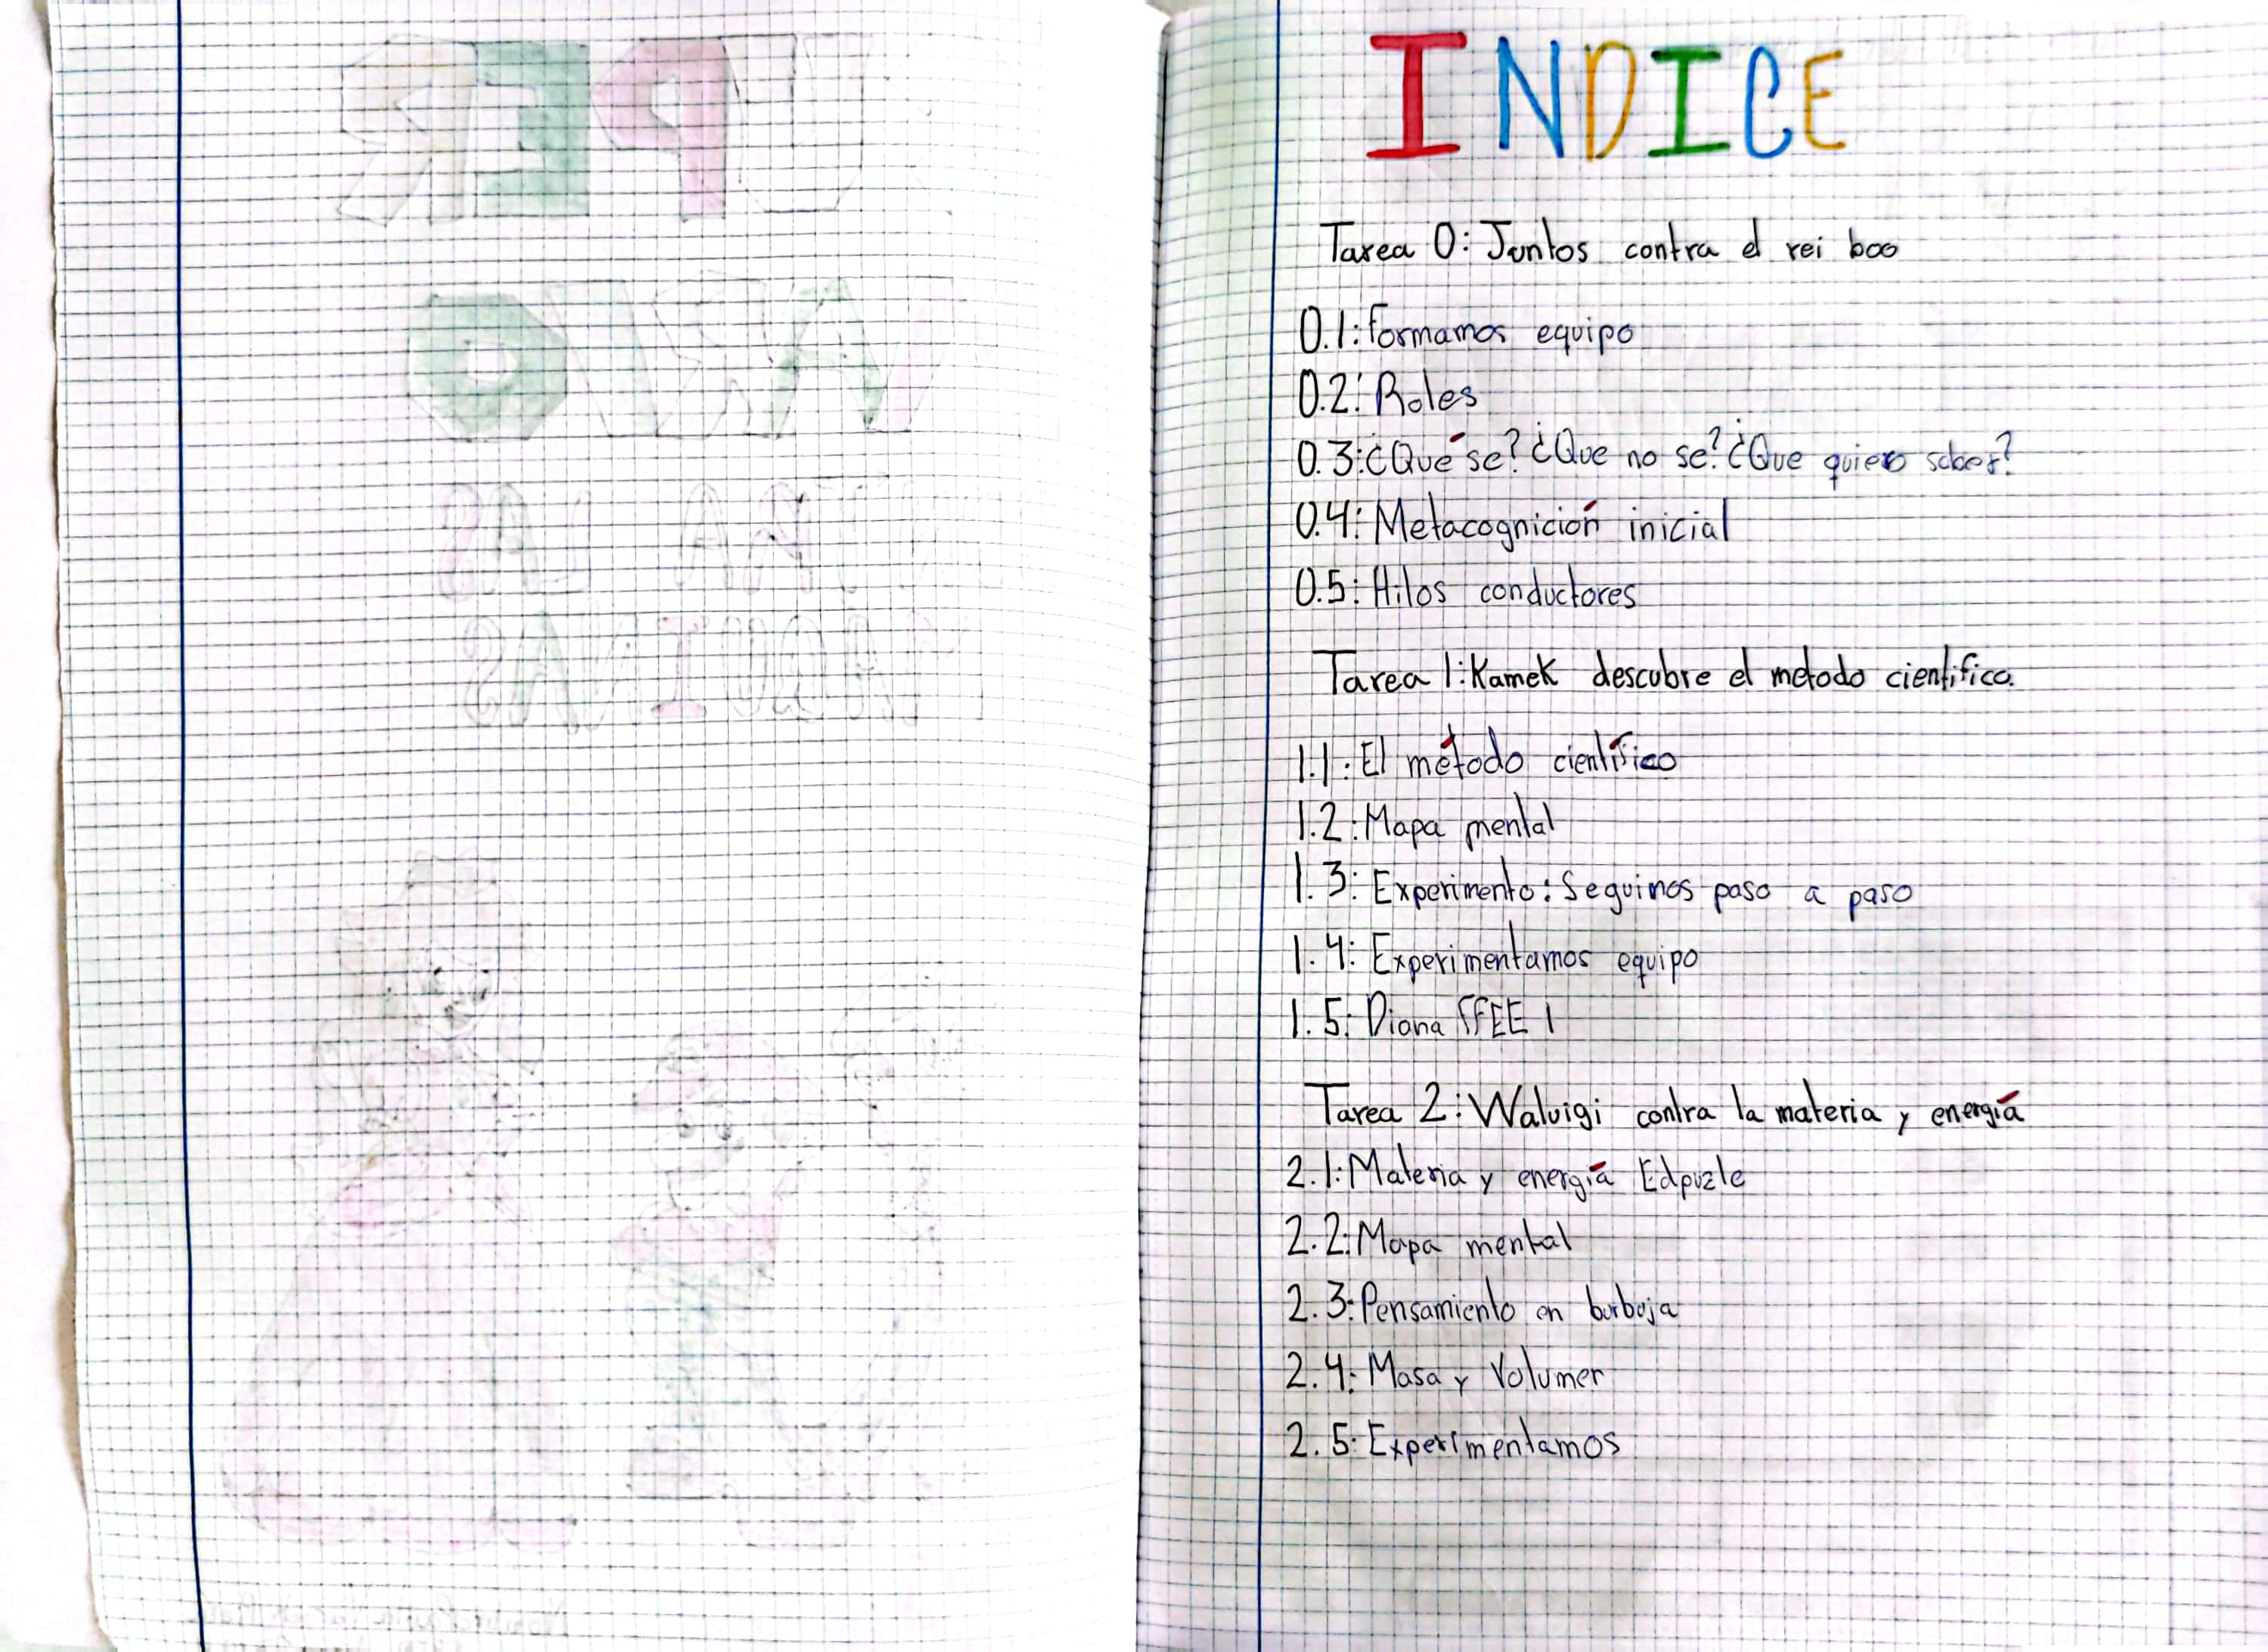 INDICE
Tarea 0: Juntos contra el rei boo
0.1: Formamos equipo
0.2: Roles
0.3: ¿Qué se? ¿Que no se? ¿Que quiero saber?
0.4: Metacognición inicial
0.5: Hilos conductores
Tarea 1: Kamek descubre el metodo cientifico.
1.1: El método científico
1.2: Mapa mental
1.3: Experimento: Seguimos paso a paso
1.4: Experimentamos equipo
1.5: Diana FFEE 1
Tarea 2: Waluigi contra la materia y energía
2.1: Materia y energía Edpuzle
2.2: Mapa mental
2.3: Pensamiento en burbuja
2.4: Masa y Volumer
2.5: Experimentamos